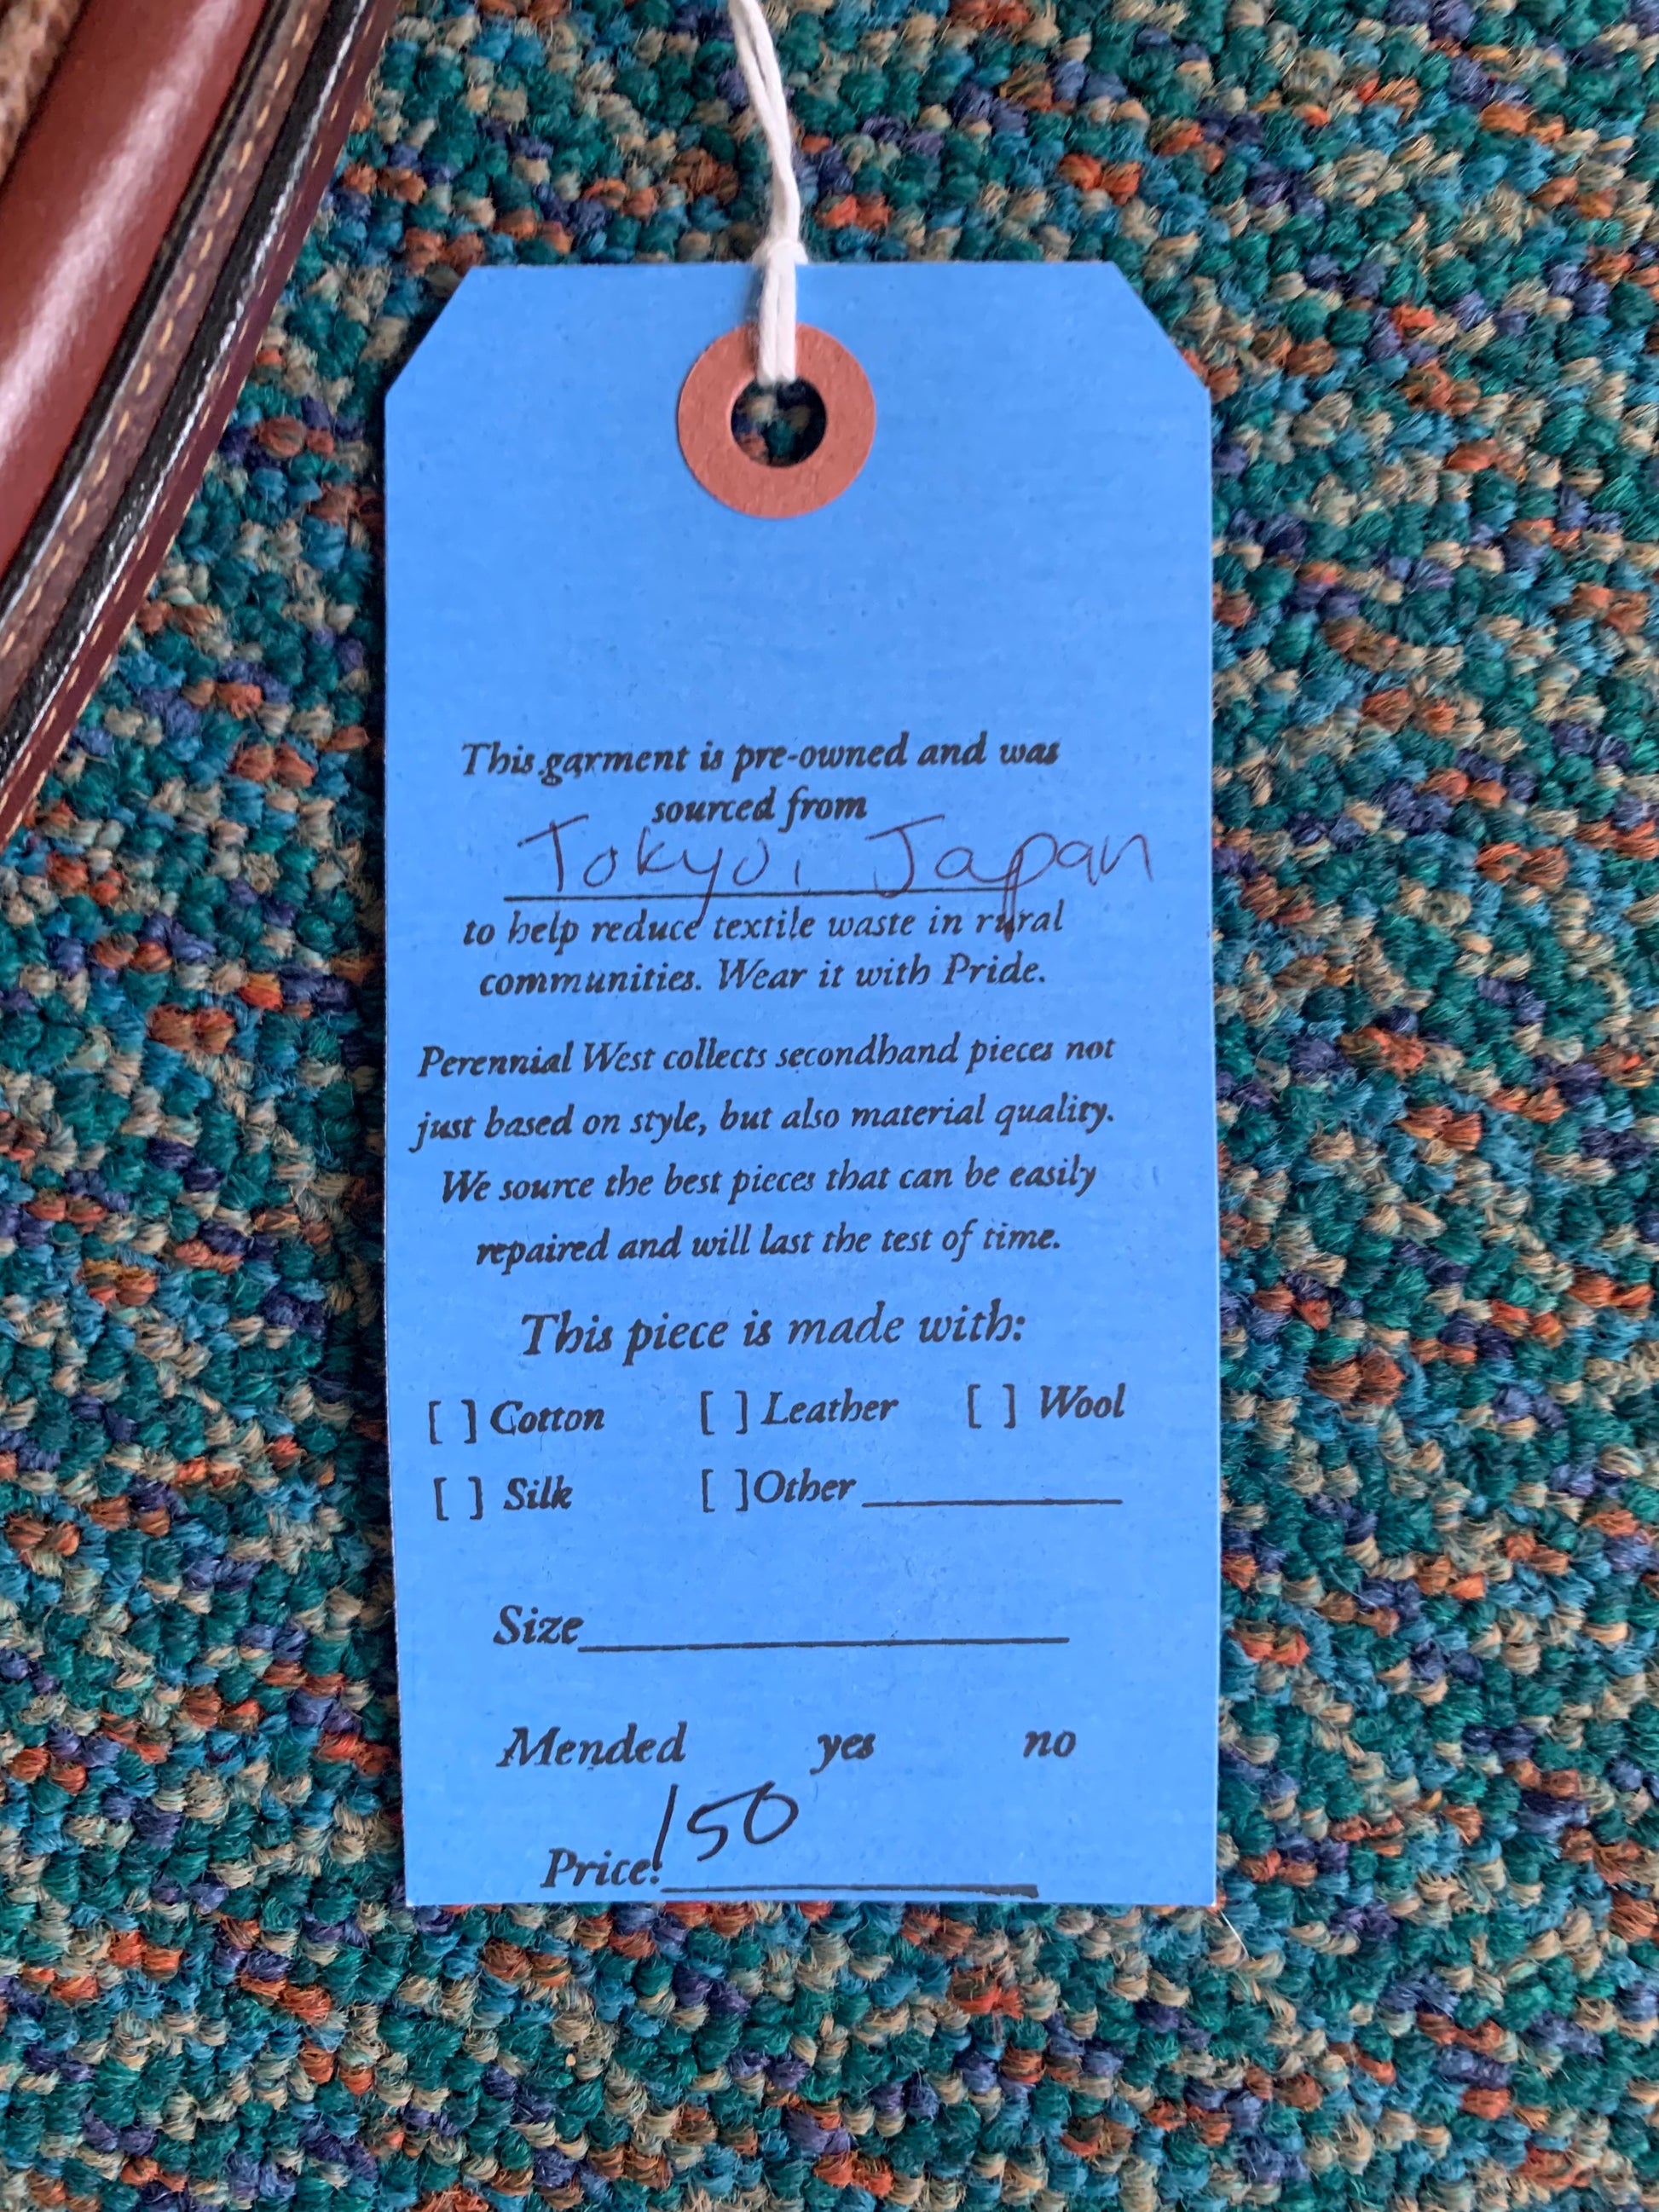 This garment is pre-owned and was
sourced from
Tokyo, Japan
to help reduce textile waste in rural
communities. Wear it with Pride.
Perennial West collects secondhand pieces not
just based on style, but also material quality.
We source the best pieces that can be easily
repaired and will last the test of time.
This piece is made with:
[ ] Cotton [ ] Leather [ ] Wool
[ ] Silk [ ]Other ____________
Size____________
Mended yes no
Price: 150